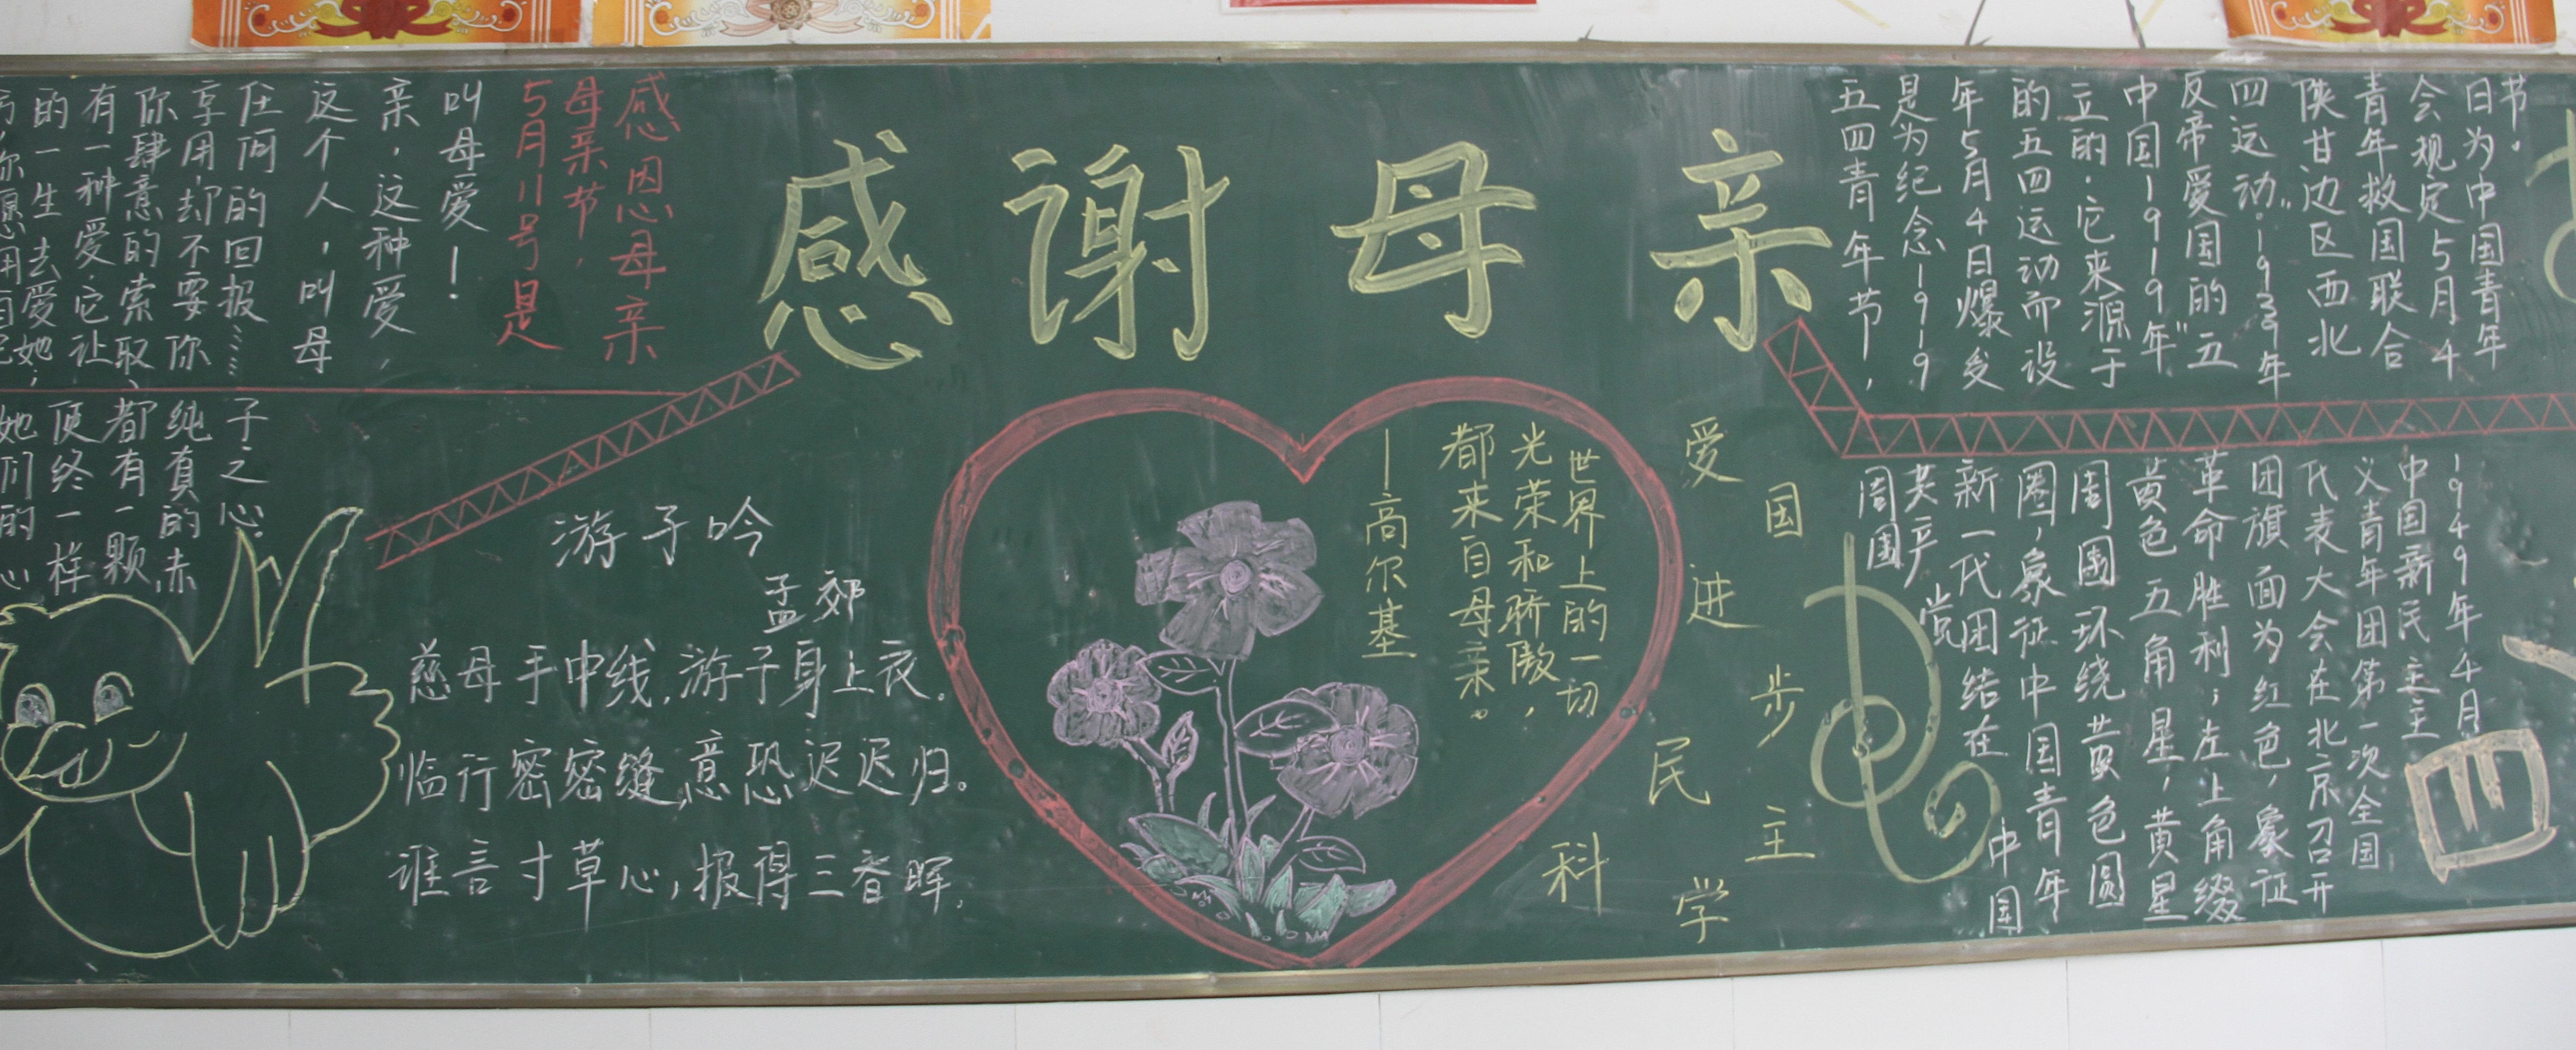 感谢母亲
你愿意用自己
的一生去爱她;
有一种爱,它让
你肆意的索取、
享用,却不要你
任何的回报……
这个人,叫母
亲,这种爱,
叫母爱!
5月11号是
母亲节,
感恩母亲
她们的心
便终一样
都有一颗
纯真的赤
子之心.
游子吟
孟郊
慈母手中线,游子身上衣。
临行密密缝,意恐迟迟归。
谁言寸草心,报得三春晖.
世界上的一切
光荣和骄傲,
都来自母亲。
—高尔基
爱国
进步
民主
科学
五四青年节,
是为纪念1919
年5月4日爆发
的五四运动而设
立的.它来源于
中国1919年"
反帝爱国的五
四运动".1939年
陕甘边区西北
青年救国联合
会规定5月4
日为中国青年
节.
1949年4月
中国新民主主
义青年团第一次全国
代表大会在北京召开
团旗面为红色,象征
革命胜利;左上角缀
黄色五角星,黄星
周围环绕黄色圆
圈,象征中国青年
新一代团结在中国
共产党
周围
四